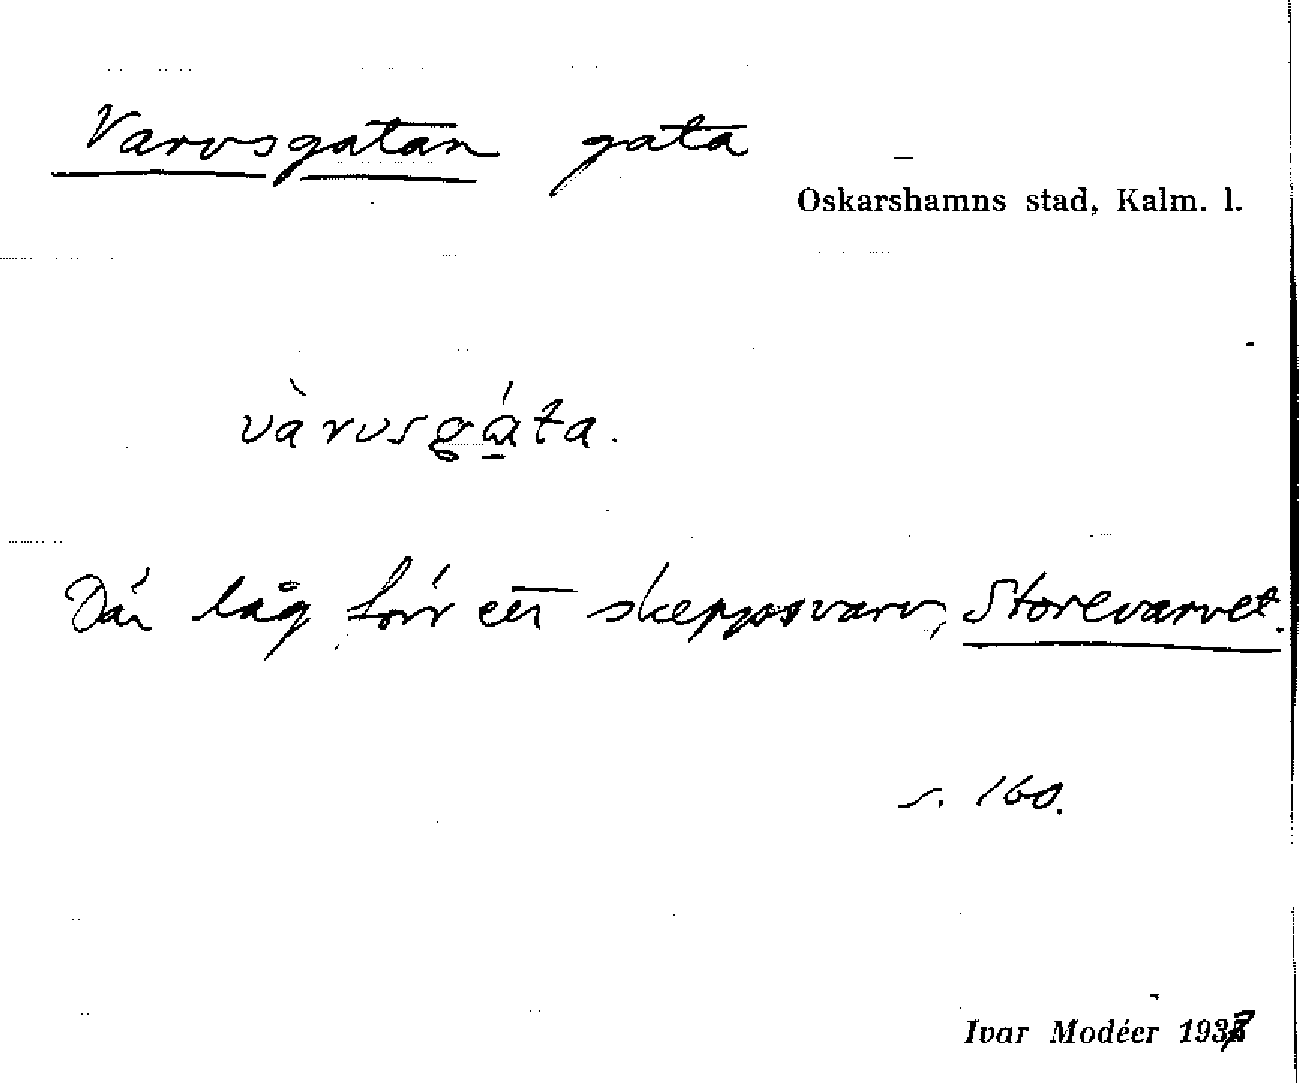 Varvsgatan gata
Oskarshamns stad, Kalm. l.
vàrvsgáta.
Där låg förr ett skeppsvarv, Storevarvet.
s. 160.
Ivar Modéer 1937